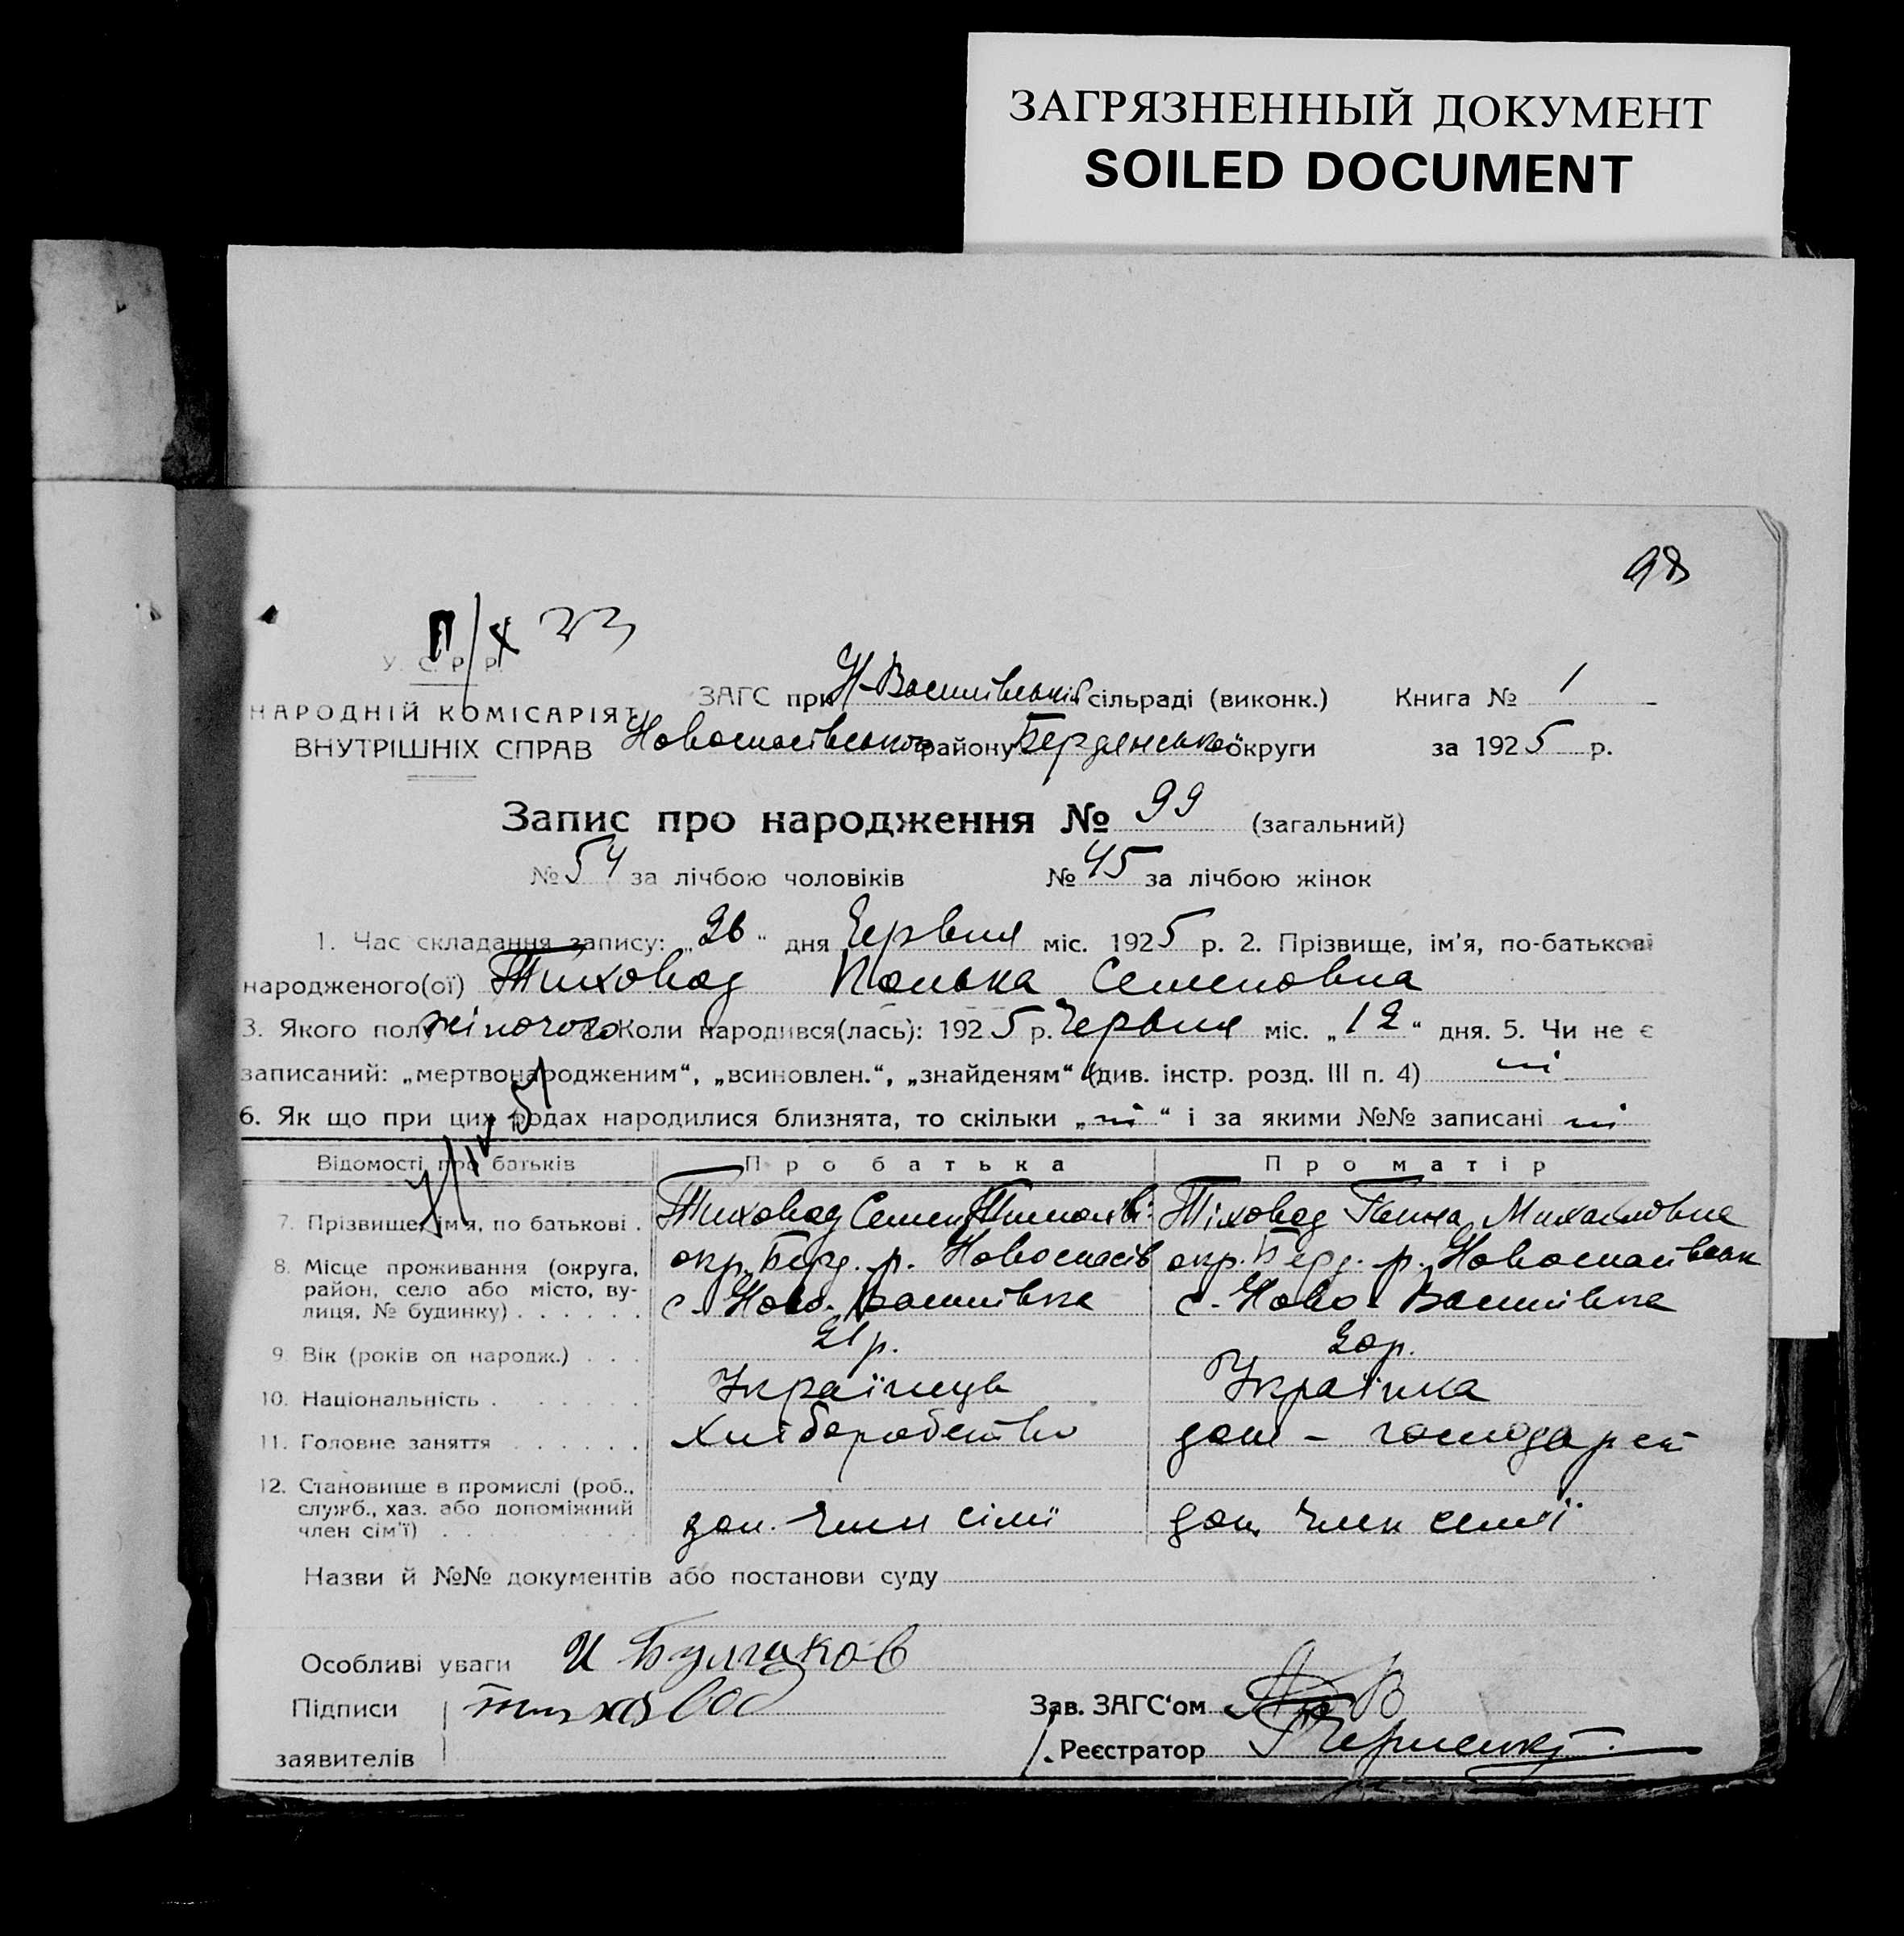 ЗАГРЯЗНЕННЫЙ ДОКУМЕНТ
SOILED DOCUMENT
98
У. С. Р. Р.
НАРОДНІЙ КОМІСАРІЯТ
ВНУТРІШНІХ СПРАВ
ЗАГС при Н-Василівській сільраді (виконк.) Книга № 1
Новоспасівського району Бердянської округи за 1925 р.
Запис про народження № 99 (загальний)
№ 54 за лічбою чоловіків № 45 за лічбою жінок
1. Час складання запису: „26“ дня Червня міс. 1925 р. 2. Прізвище, ім’я, по-батькові
народженого(ої) Тиховод Семеновна
3. Якого полу жіночого Коли народився(лась): 1925 р. Червня міс. „12“ дня. 5. Чи не є
записаний: „мертвонародженим“, „всиновлен.“, „знайденям“ (див. інстр. розд. III п. 4) ні
6. Як що при цих родах народилися близнята, то скільки „ні“ і за якими №№ записані ні
Відомості про батьків Про батька Про матір
7. Прізвище, ім’я, по батькові . Тиховод Семен Тіховод Ганна Михаиловна
8. Місце проживання (округа, район, село або місто, вулиця, № будинку) . . . . . .
окр. Берд. р. Новоспасів окр. Берд. р. Новоспасівськ
с. Ново-Василівка с. Ново-Василівка
9. Вік (років од народж.) . . . 21 р. 20 р.
10. Національність . . . . . . Українець Українка
11. Головне заняття . . . . . . Хліборобство дом - господарст
12. Становище в промислі (роб., служб., хаз. або допоміжний член сім’ї)
доп. член сімї доп. член семії
Назви й №№ документів або постанови суду
Особливі уваги И Булгаков
Підписи заявителів тиховод
Зав. ЗАГС‘ом
Реєстратор